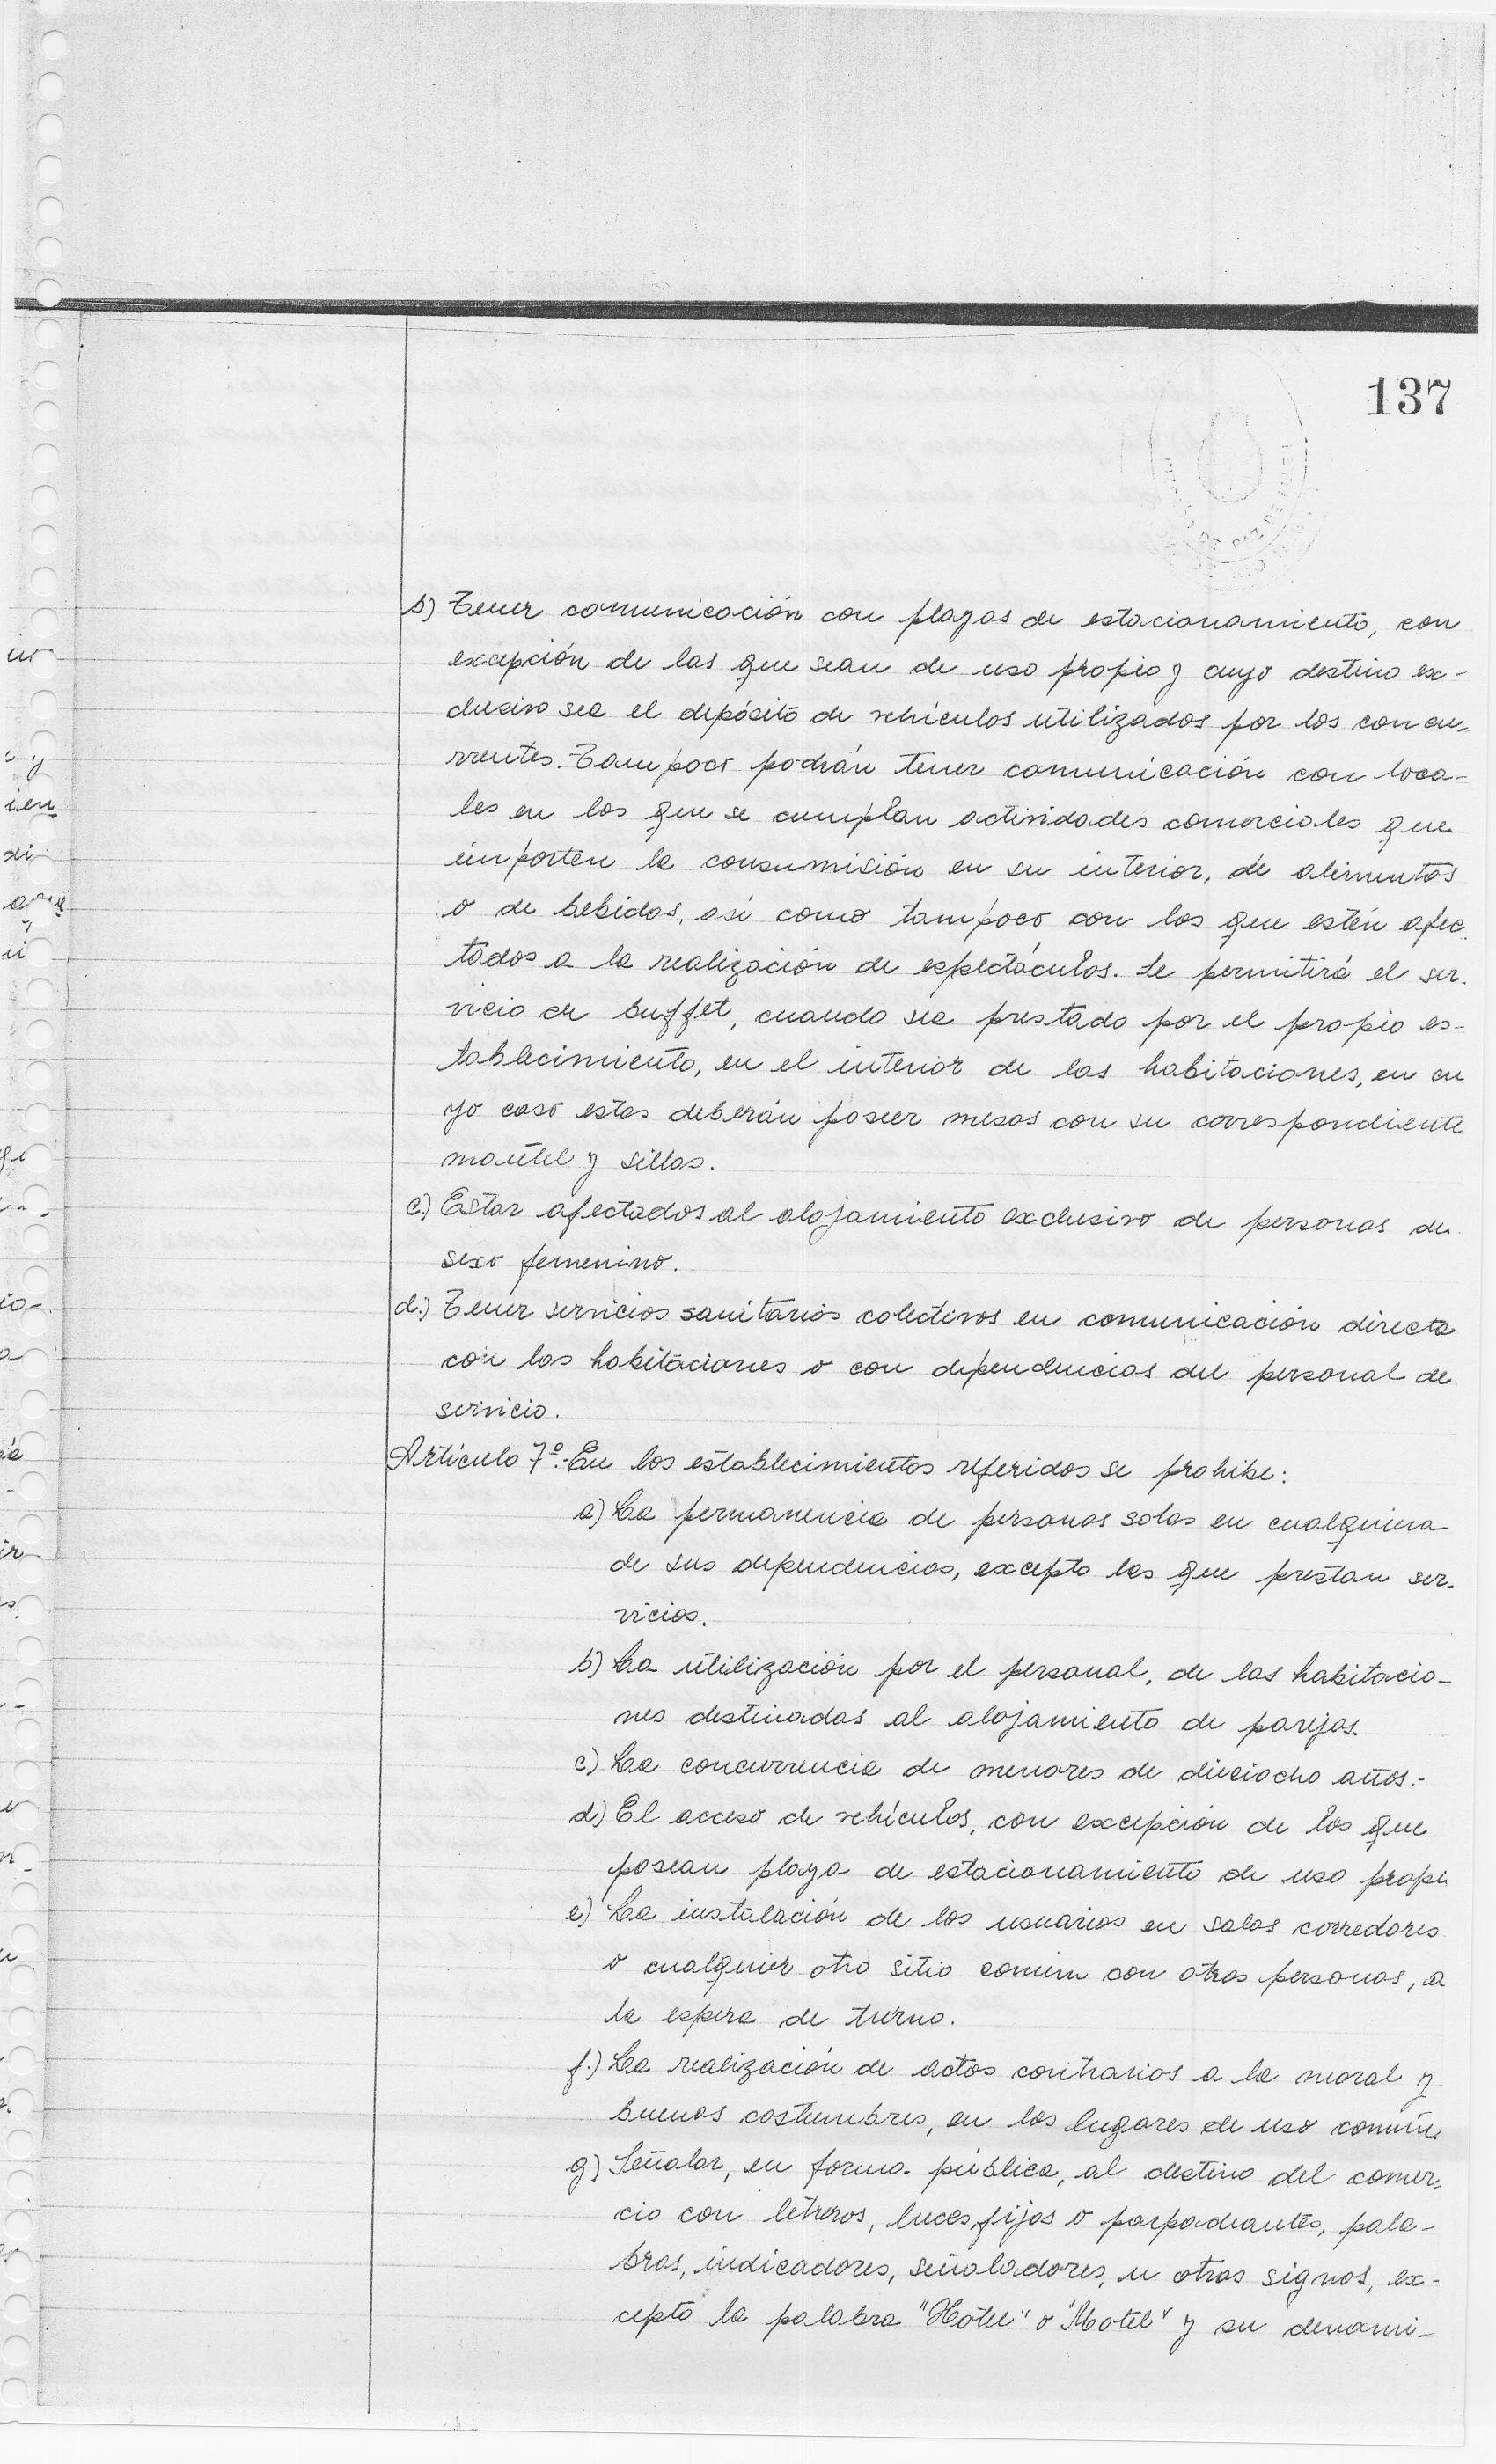 137
b) Tener comunicación con playas de estacionamiento, con
excepción de las que sean de uso propio y cuyo destino ex-
clusivo sea el depósito de vehículos utilizados por los concu-
rrentes. Tampoco podrán tener comunicación con loca-
les en los que se cumplan actividades comerciales que
importen la consumisión en su interior, de alimentos
o de bebidas, así como tampoco con los que estén afec-
tados a la realización de espectáculos. Se permitirá el ser-
vicio de buffet, cuando sea prestado por el propio es-
tablecimiento, en el interior de las habitaciones, en cu
yo caso estas deberán poseer mesas con su correspondiente
mantel y sillas.
c.) Estar afectados al alojamiento exclusivo de personas de
sexo femenino.
d.) Tener servicios sanitarios colectivos en comunicación directa
con las habitaciones o con dependencias del personal de
servicio.
Artículo 7º.- En los establecimientos referidos se prohibe:
a) La permanencia de personas solas en cualquiera
de sus dependencias, excepto las que prestan ser-
vicios.
b) La utilización por el personal, de las habitacio-
nes destinadas al alojamiento de parejas.
c) La concurrencia de menores de dieciocho años.-
d) El acceso de vehículos, con excepción de los que
posean playa de estacionamiento de uso propi
e) La instalación de los usuarios en salas corredores
o cualquier otro sitio común con otras personas, a
la espera de turno.
f.) La realización de actos contrarios a la moral y
buenas costumbres, en los lugares de uso común.
g) Señalar, en forma pública, al destino del comer-
cio con letreros, luces, fijas o parpadeantes, pala-
bras, indicadores, señaladores, u otros signos, ex-
cepto la palabra "Hotel" o "Motel" y su denomi-